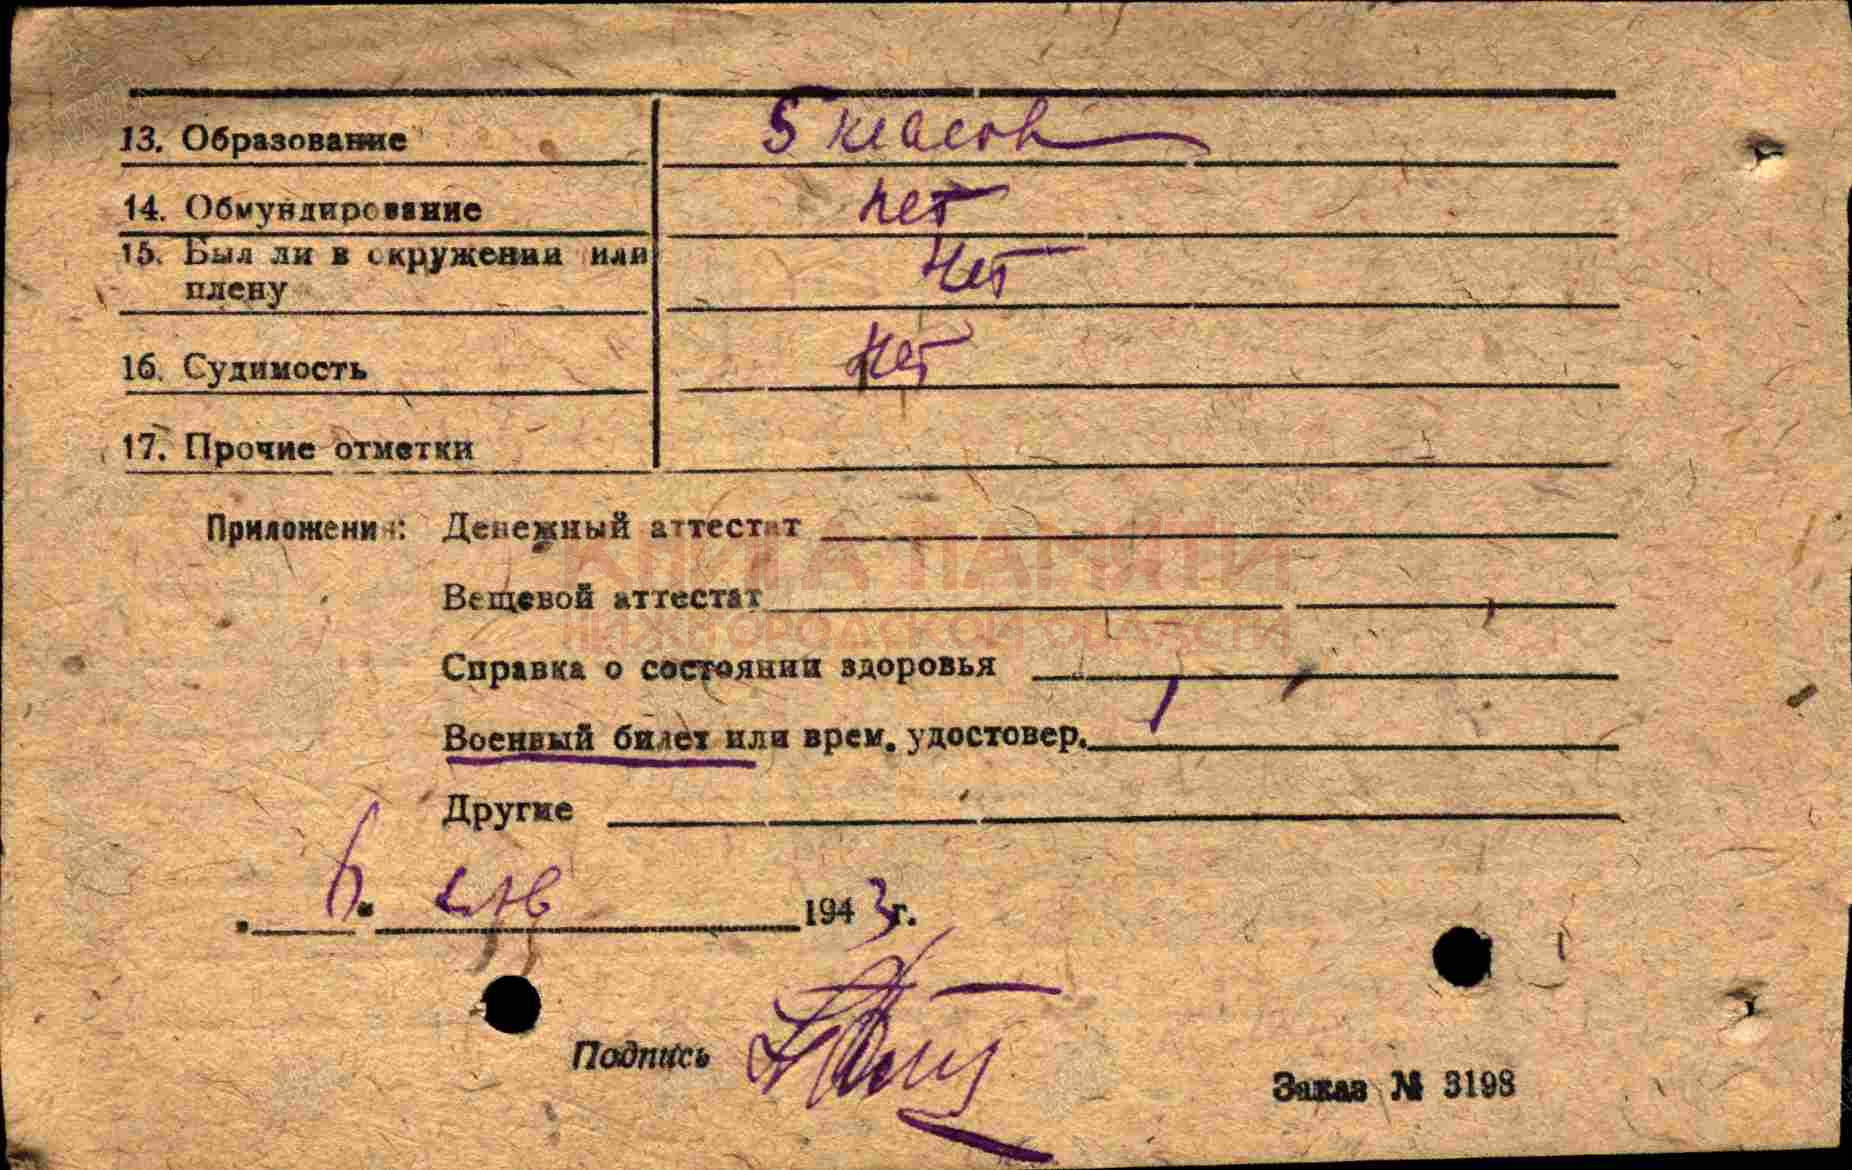 13. Образование 5 классов
14. Обмундирование нет
15. Был ли в окружении или
плену нет
16. Судимость нет
17. Прочие отметки
Приложения: Денежный аттестат
КНИГА ПАМЯТИ
Вещевой аттестат
НИЖЕГОРОДСКОЙ ОБЛАСТИ
Справка о состоянии здоровья
Военный билет или врем. удостовер. 1
Другие
"6" янв 1943 г.
Подпись
Заказ № 3198